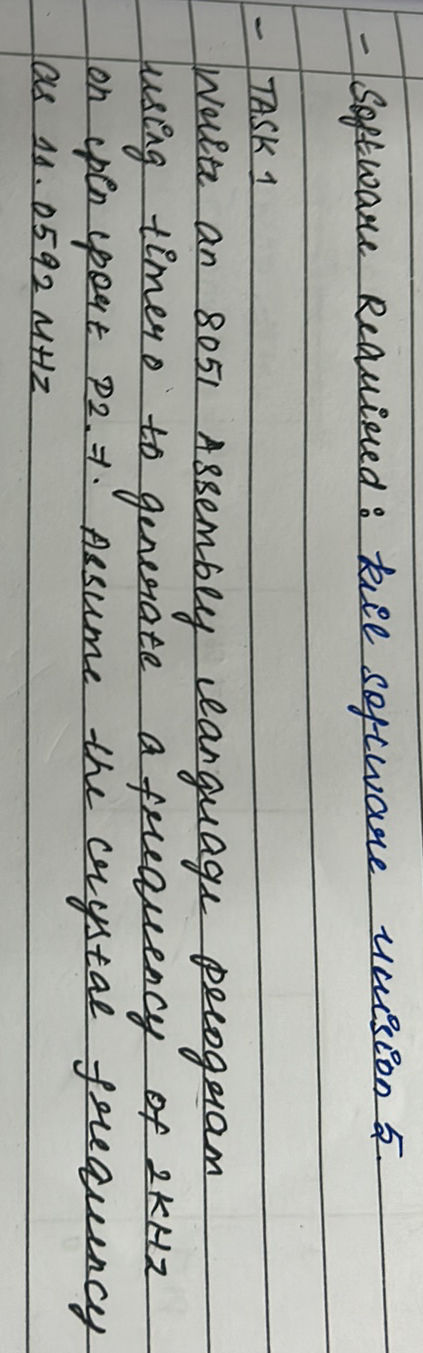 - Software Required: Keil software version 5.
- TASK 1
Write an 8051 Assembly language program
using timer0 to generate a frequency of 2KHz
on pin port P2.7. Assume the crystal frequency
as 11.0592 MHz